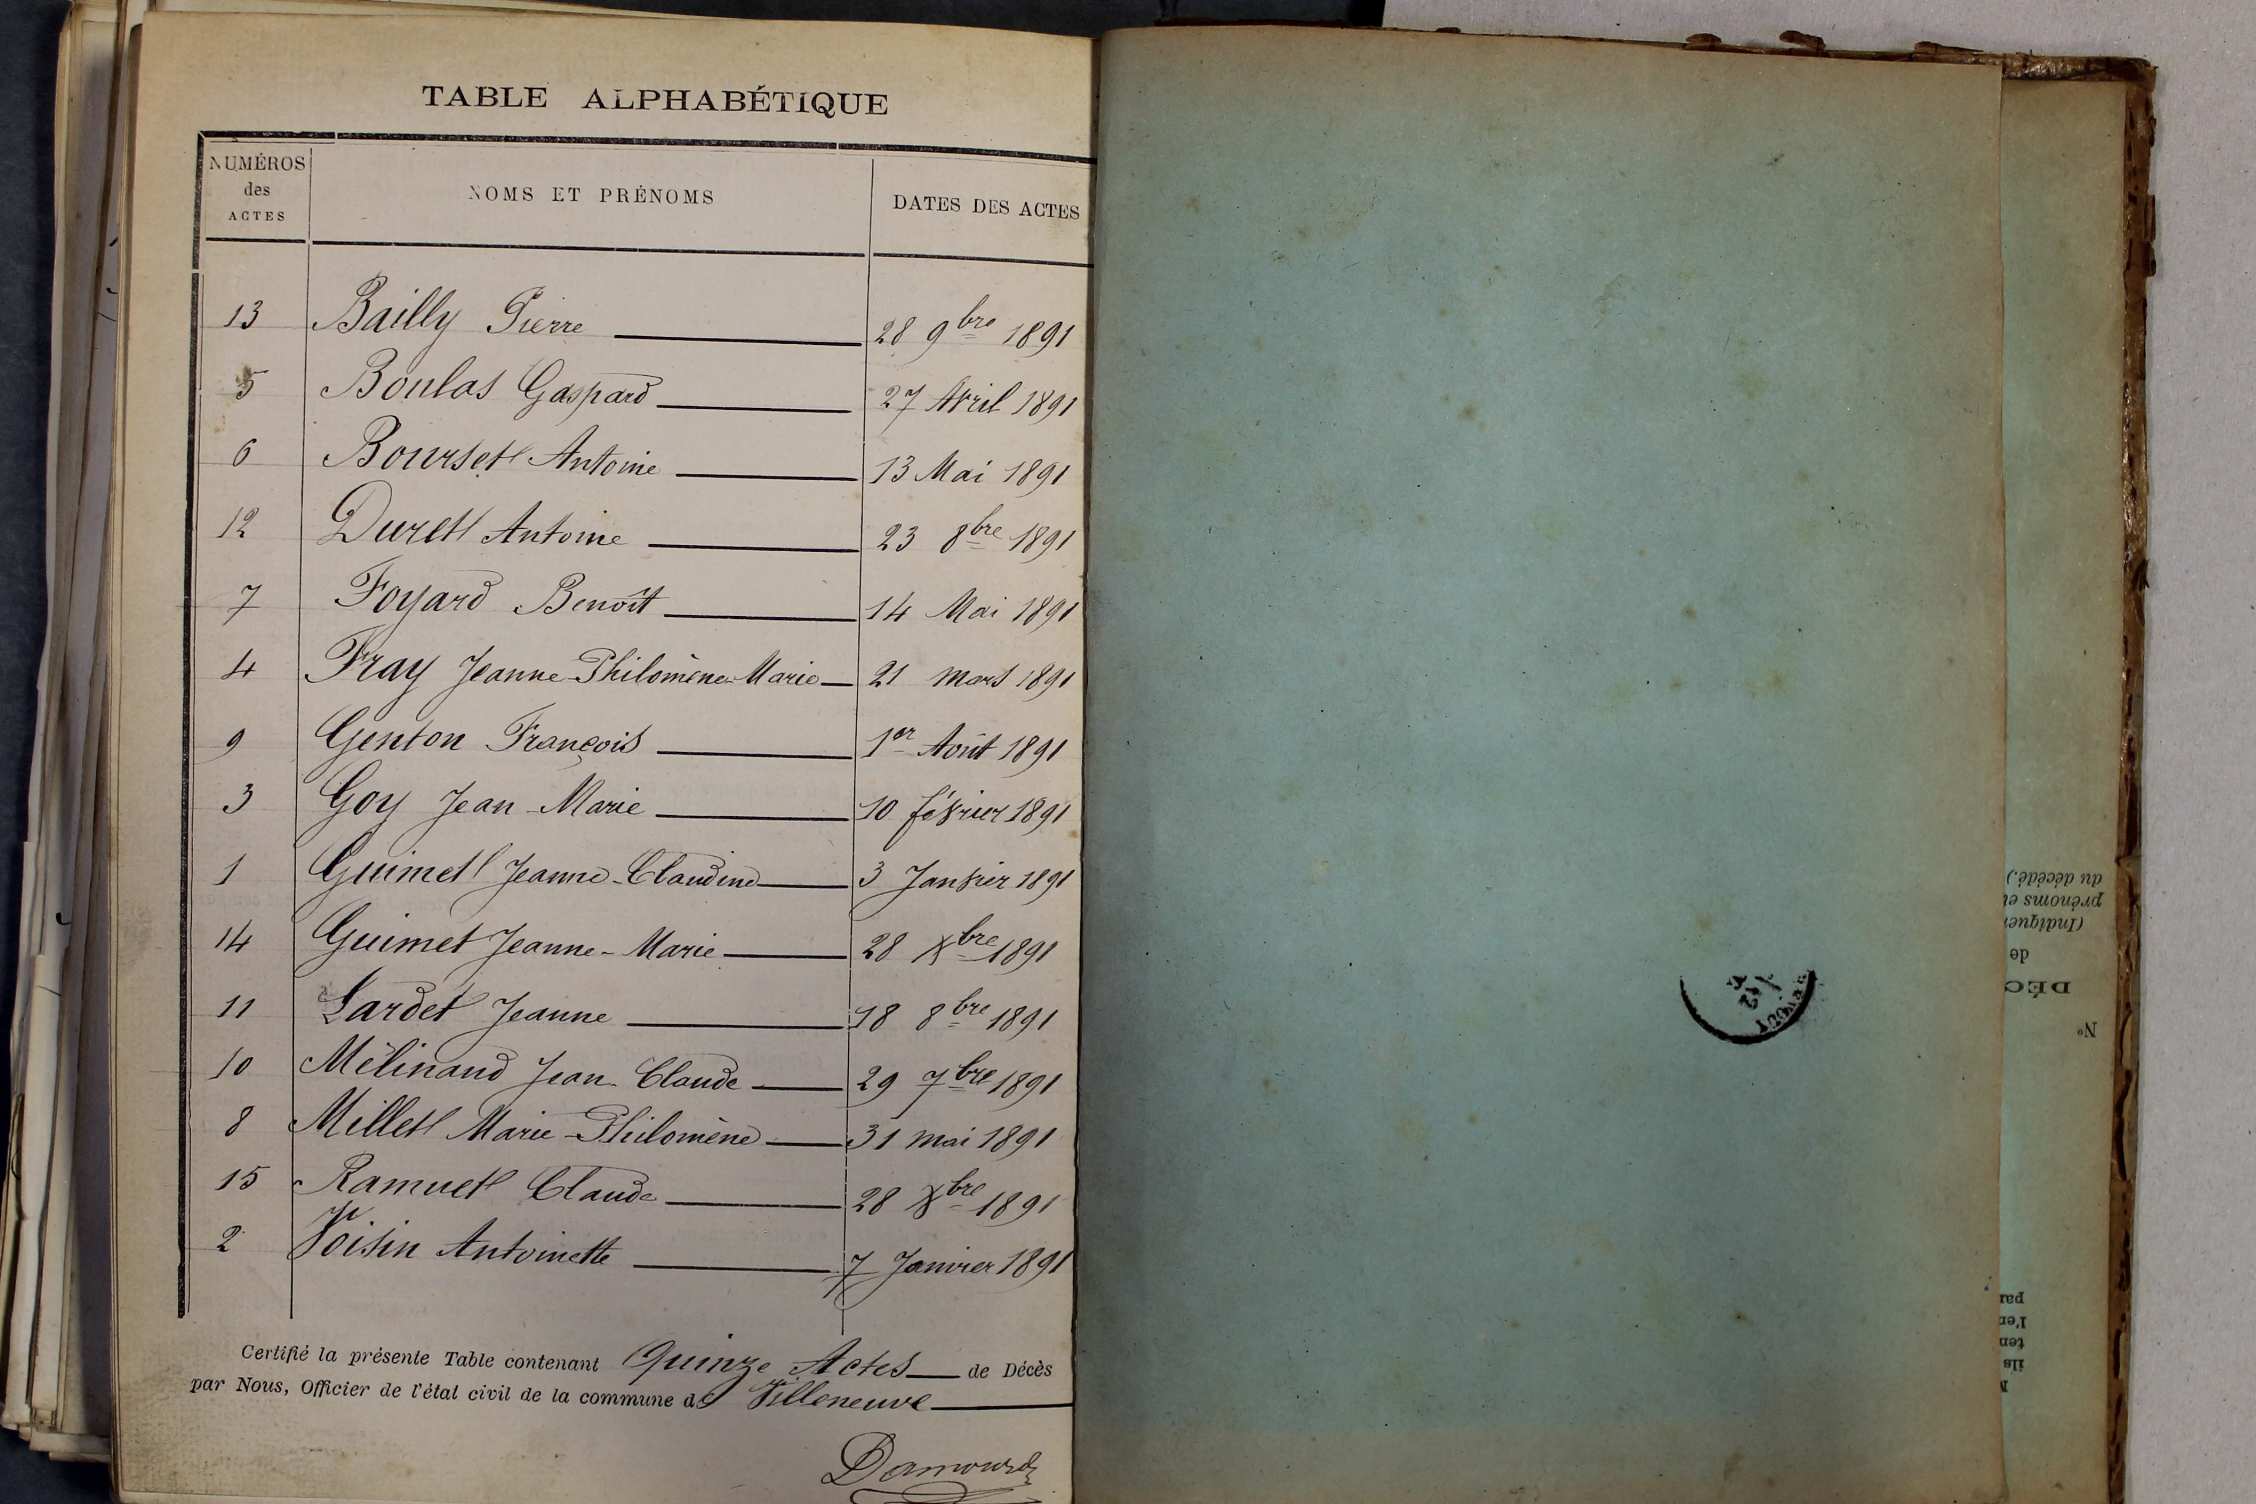 TABLE ALPHABÉTIQUE
NUMÉROS des ACTES NOMS ET PRÉNOMS DATES DES ACTES
13 Bailly Pierre 28 9bre 1891
5 Boulas Gaspard 27 Avril 1891
6 Bourset Antoine 13 Mai 1891
12 Duret Antoine 23 8bre 1891
7 Foyard Benoît 14 Mai 1891
4 Fray Jeanne-Philomène-Marie 21 Mars 1891
9 Genton François 1er Août 1891
3 Goy Jean-Marie 10 février 1891
1 Guimet Jeanne-Claudine 3 Janvier 1891
14 Guimet Jeanne-Marie 28 Xbre 1891
11 Lardet Jeanne 18 8bre 1891
10 Mélinand Jean-Claude 29 7bre 1891
8 Millet Marie-Philomène 31 mai 1891
15 Ramuet Claude 28 Xbre 1891
2 Voisin Antoinette 7 Janvier 1891
Certifié la présente Table contenant Quinze Actes de Décès
par Nous, Officier de l'état civil de la commune de Villeneuve
Nº
DÉC
de
(Indiquer
prénoms et
du décédé.)
ils
ten
l'en
par